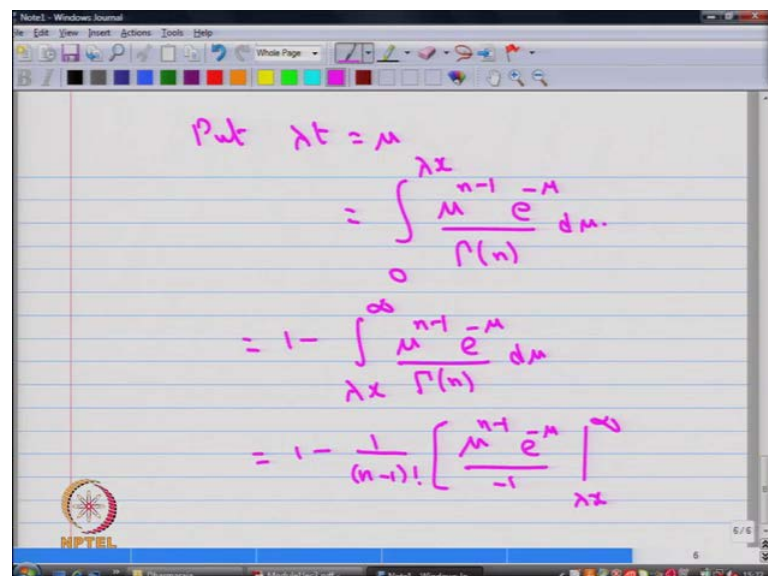 Note1 - Windows Journal
File Edit View Insert Actions Tools Help
Whole Page
Put λt = μ
= ∫_0^{λx} \frac{μ^{n-1} e^{-μ}}{Γ(n)} dμ.
= 1 - ∫_{λx}^{∞} \frac{μ^{n-1} e^{-μ}}{Γ(n)} dμ
= 1 - \frac{1}{(n-1)!} [ \frac{μ^{n-1} e^{-μ}}{-1} |_{λx}^{∞}
NPTEL
6/6
6
15:22